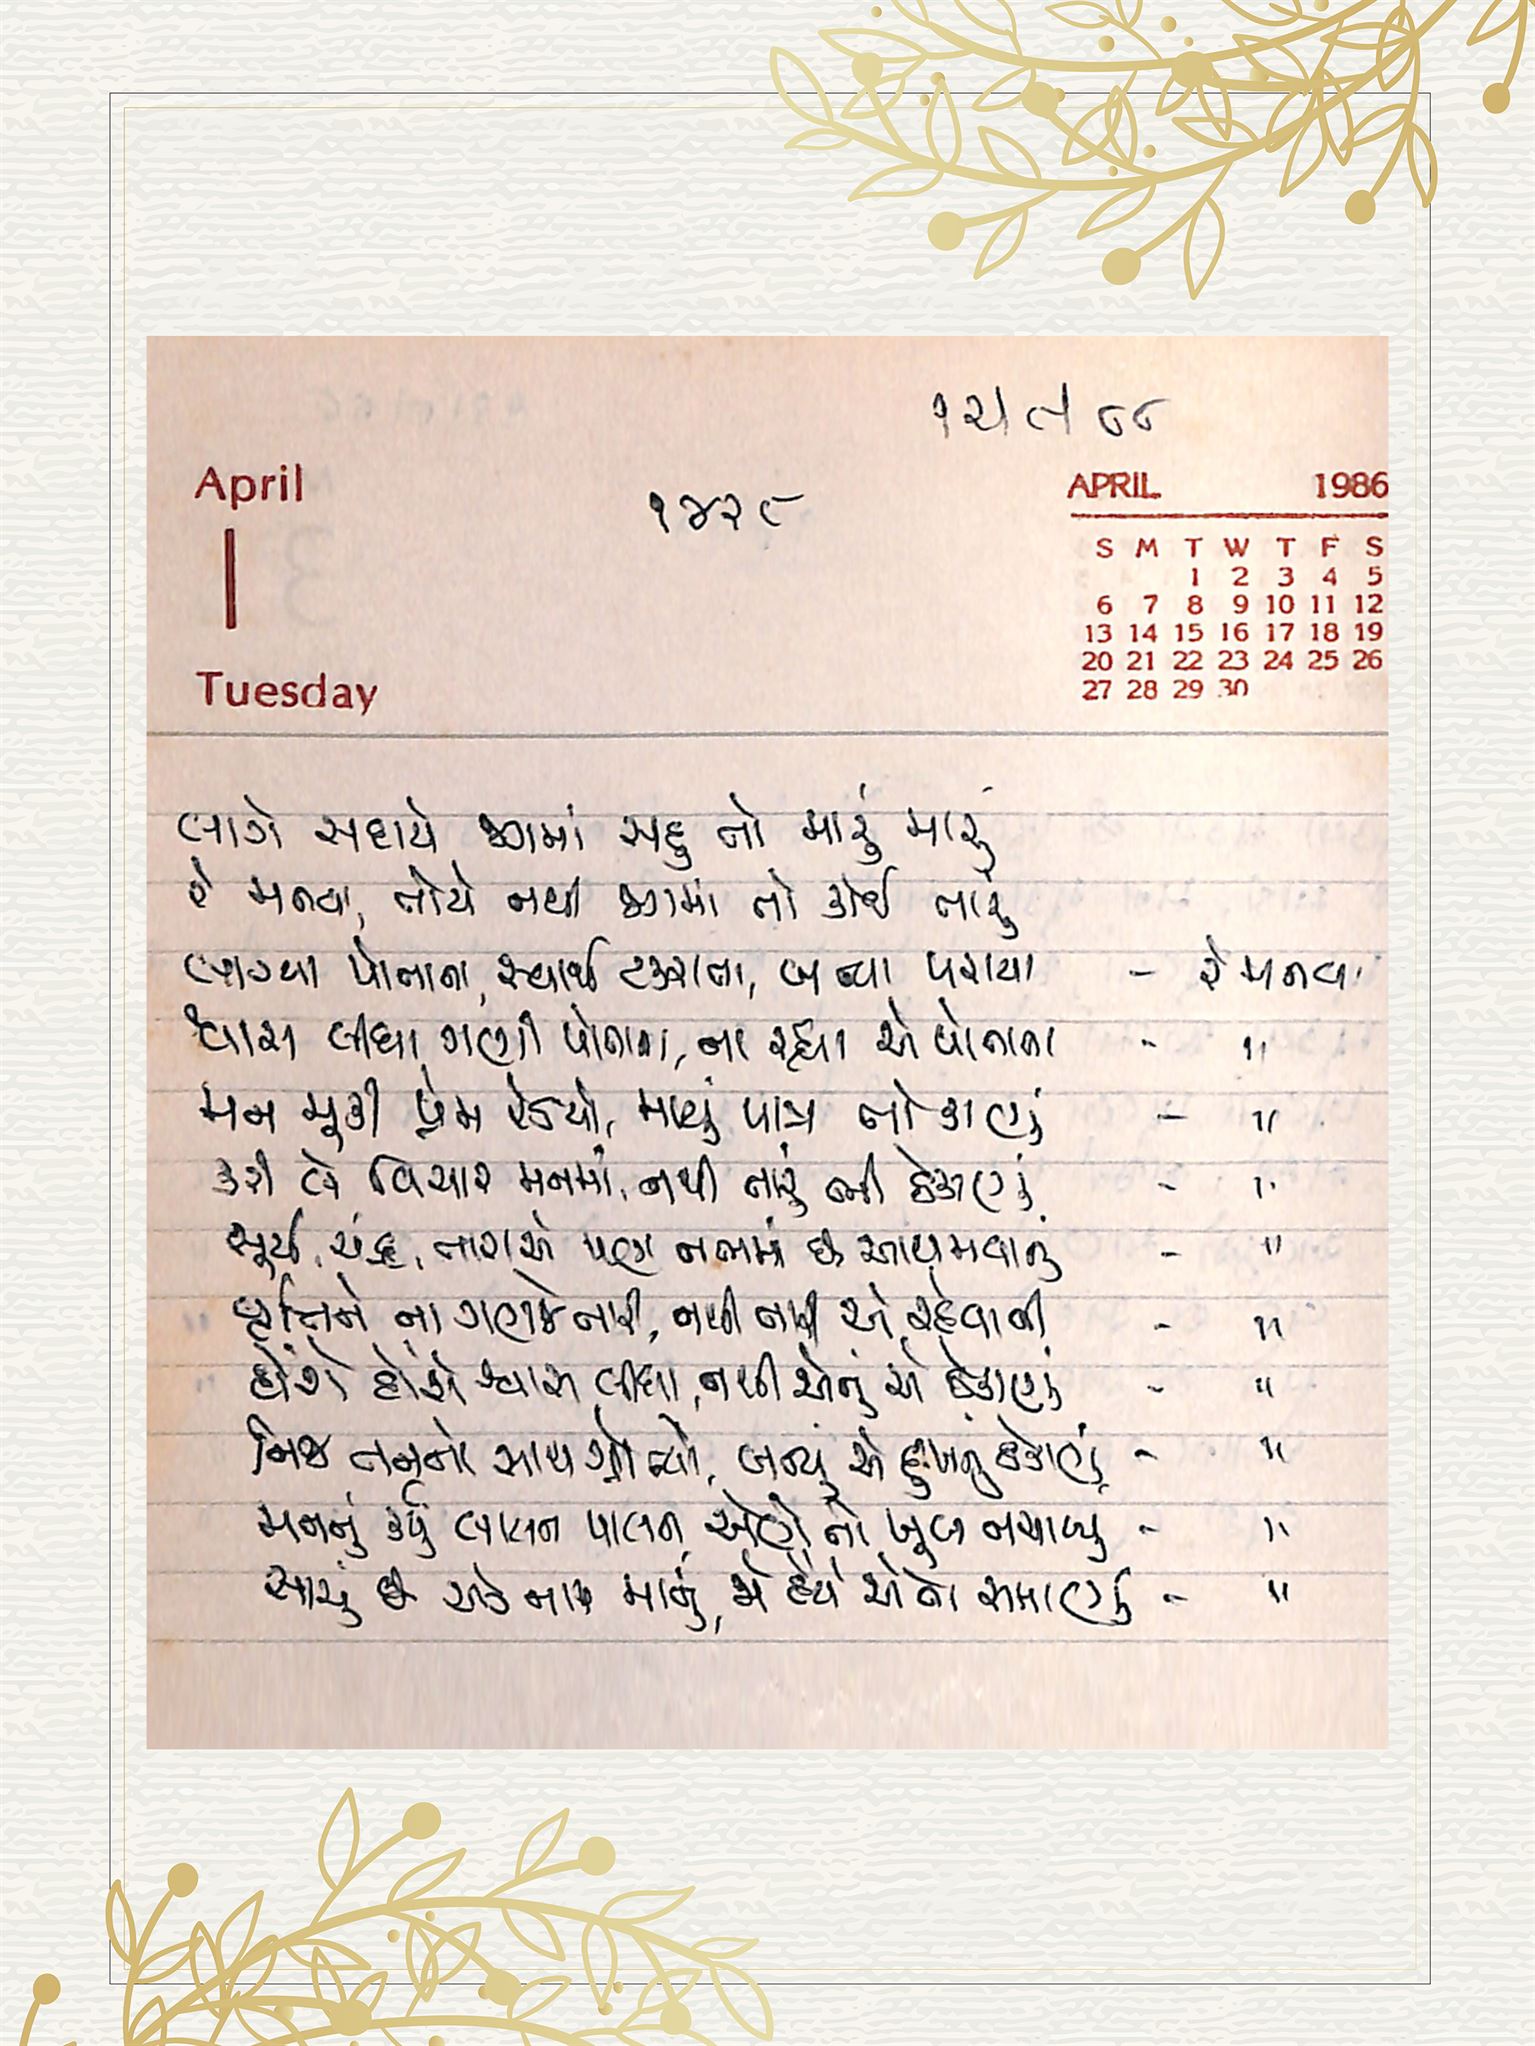 ૧૨/૯/૮૮
April
૧૪૨૯
APRIL 1986
S M T W T F S
1 2 3 4 5
6 7 8 9 10 11 12
13 14 15 16 17 18 19
20 21 22 23 24 25 26
27 28 29 30
1
Tuesday
લાગે સદાયે જગમાં સહુ તો મારું મારું
રે મનવા, તોયે નથી જગમાં તો કોઈ તારું
લાગ્યા પોતાના, સ્વાર્થ ટકરાતા, બન્યા પરાયા - રે મનવા
શ્વાસ લીધા ગણી પોતાના, ના રહ્યા એ પોતાના - "
મન મૂકી પ્રેમ રેડ્યો, માન્યું પાત્ર તો કાણું - "
કરી લે વિચાર મનમાં, નથી તારું બી ઠેકાણું - "
સૂર્ય, ચંદ્ર, તારાએ પણ નભમાં છે આથમવાનું - "
વૃત્તિને ના ગણજે તારી, નથી તારી એ રહેવાની - "
હોંશે હોંશે શ્વાસ લીધા, નથી એનું એ ઠેકાણું - "
નિજ તનનો સાથ શોધ્યો, બન્યું એ દુઃખનું ઠેકાણું - "
મનનું કર્યું લાલન પાલન, એણે તો ખૂબ નચાવ્યું - "
સાચું છે એક નામ માનું, જે હૈયે એને સમાણું - "